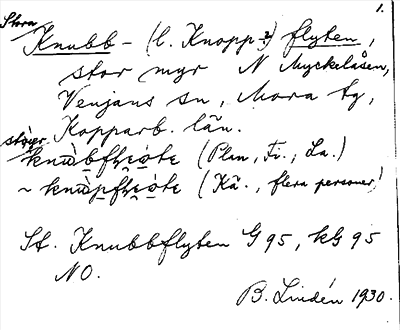 1.
Stora
Knubb- (l. Knopp-?) flyten,
stor myr N Myckelåsen,
Venjans sn, Mora tg,
Kopparb. län.
(Plan, Fi., La.)
~ (Kä., flera personer)
St. Knubbflyten G 95, kG 95
NO.
B. Lindén 1930.